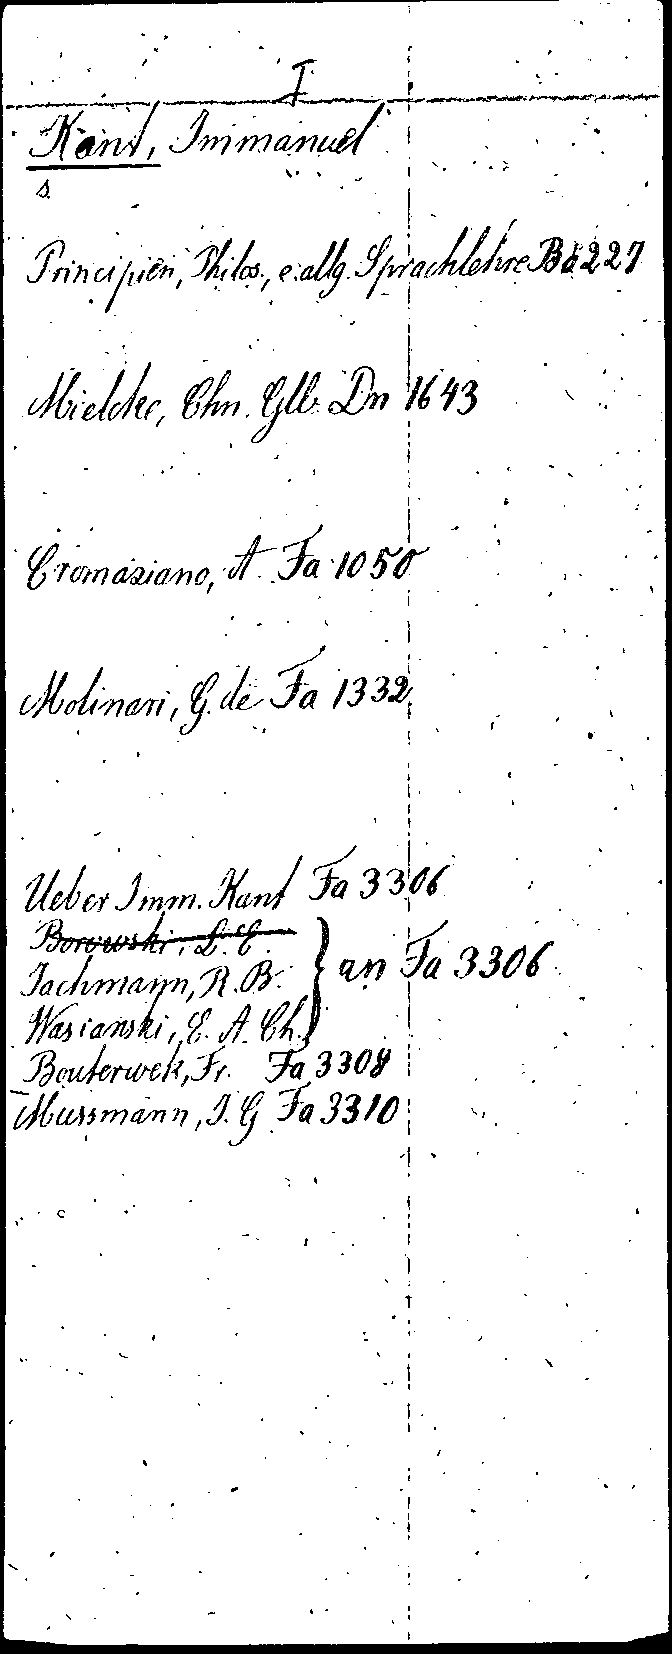 I
Kant, Immanuel
s.
Principien, Philos., e. allg. Sprachlehre Bd 227
Mielcke, Chn. Glb. Dn 1643
Cromaziano, A. Fa 1050
Molinari, G. de Fa 1332
Ueber Imm. Kant Fa 3306
Borowski, L. E.
Jachmann, R. B. } an Fa 3306
Wasianski, E. A. Ch.
Bouterwek, Fr. Fa 3308
Mussmann, J. G Fa 3310